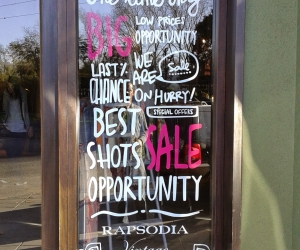 BIG
LOW PRICES
OPPORTUNITY
LAST%
CHANCE
WE
ARE
Sale
ON HURRY!
SPECIAL OFFERS
BEST
SHOTS SALE
OPPORTUNITY
RAPSODIA
Vintage